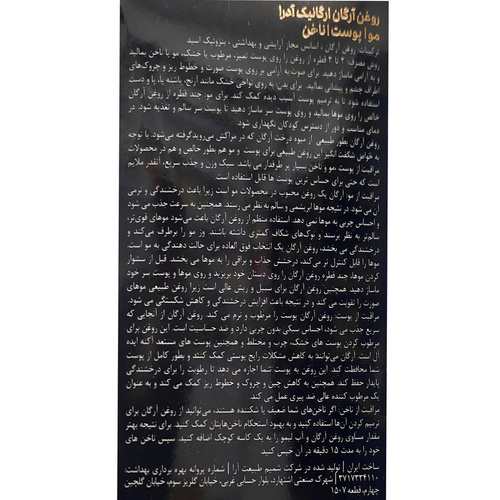 روغن آرگان ارگانیک آدرا
مو | پوست | ناخن
ترکیبات: روغن آرگان ، اسانس مجاز آرایشی و بهداشتی ، بنزوئیک اسید
روش مصرف: ۲ تا ۳ قطره از روغن را روی پوست تمیز، مرطوب یا خشک، مو یا ناخن بمالید
و به آرامی ماساژ دهید. برای صورت به آرامی بر روی پوست صورت و خطوط ریز و چروک‌های
اطراف چشم و پیشانی بمالید. برای بدن، به روی نواحی خشک مانند آرنج، پاشنه پا، یا و دست
استفاده شود تا به ترمیم پوست آسیب دیده کمک کند. برای مو، چند قطره از روغن آرگان
خالص را روی موها بمالید و روی پوست سر ماساژ دهید تا پوست سر سالم و تغذیه شود. در
دمای مناسب و دور از دسترس کودکان نگهداری شود.
روغن آرگان بطور طبیعی از میوه درخت آرگان که در مراکش می‌روید گرفته می‌شود. با توجه
به خواص شگفت انگیز این روغن طبیعی برای پوست و مو بطور خالص و هم در محصولات
مراقبت از پوست، مو و ناخن بسیار پر طرفدار می باشد. سبک وزن و جذب سریع، آنقدر ملایم
است که حتی برای حساس ترین پوست ها قابل استفاده است.
مراقبت از مو: آرگان یک روغن محبوب در محصولات مو است زیرا باعث درخشندگی و نرمی
آن می شود. در نتیجه موها ابریشمی و سالم به نظر می رسند. همچنین به سرعت جذب می شود
و احساس چربی به موها نمی دهد. استفاده منظم از روغن آرگان باعث می‌شود موهای قوی‌تر،
سالم‌تر به نظر برسند و نوک‌های شکاف کمتری داشته باشند. وز مو را برطرف می‌کند و
درخشندگی می بخشد، روغن آرگان یک انتخاب فوق العاده برای حالت دهندگی به مو است.
موها را قابل کنترل تر می‌کند، درخشش جذاب و براقی را به موها می بخشد. قبل از سشوار
کردن موها، چند قطره روغن آرگان را روی دستان خود بریزید و روی موها و پوست سر خود
ماساژ دهید. همچنین روغن آرگان برای سبیل و ریش عالی است زیرا روغن طبیعی موهای
صورت را تقویت می کند و در نتیجه باعث افزایش درخشندگی و کاهش شکستگی می شود.
مراقبت از پوست: روغن آرگان پوست را مرطوب و نرم می کند. روغن آرگان از آنجایی که
سریع جذب می شود، احساس سبکی بدون چربی دارد و ضد حساسیت است. این روغن برای
مرطوب کردن پوست های خشک، چرب و مختلط و همچنین پوست های مستعد آکنه ایده
آل است. آرگان می‌توانند به کاهش مشکلات رایج پوستی کمک کنند و بطور کامل از پوست
شما محافظت کند. این روغن به پوست شما اجازه می دهد تا رطوبت را برای درخشندگی
پایدار حفظ کند. همچنین به کاهش چین و چروک و خطوط ریز کمک می کند و به عنوان
یک مرطوب کننده عالی ضد پیری عمل می کند.
مراقبت از ناخن: اگر ناخن‌های شما ضعیف یا شکننده هستند، می‌توانید از روغن آرگان برای
ترمیم کردن آن‌ها استفاده کنید و به بهبود استحکام ناخن‌هایتان کمک کنید. برای نتیجه بهتر
مقدار مساوی روغن آرگان و آب لیمو را به یک کاسه کوچک اضافه کنید. سپس ناخن های
خود را به مدت ۱۵ دقیقه در آن خیس کنید.
ساخت ایران | تولید شده در شرکت شمیم طبیعت آرا | شماره پروانه بهره برداری بهداشت:
۳۷۱۷۳۲۴۱۱۰ | شهرک صنعتی اشتهارد، بلوار حسابی غربی، خیابان گلریز سوم، خیابان گلچین
چهارم، قطعه ۱۵۰۷